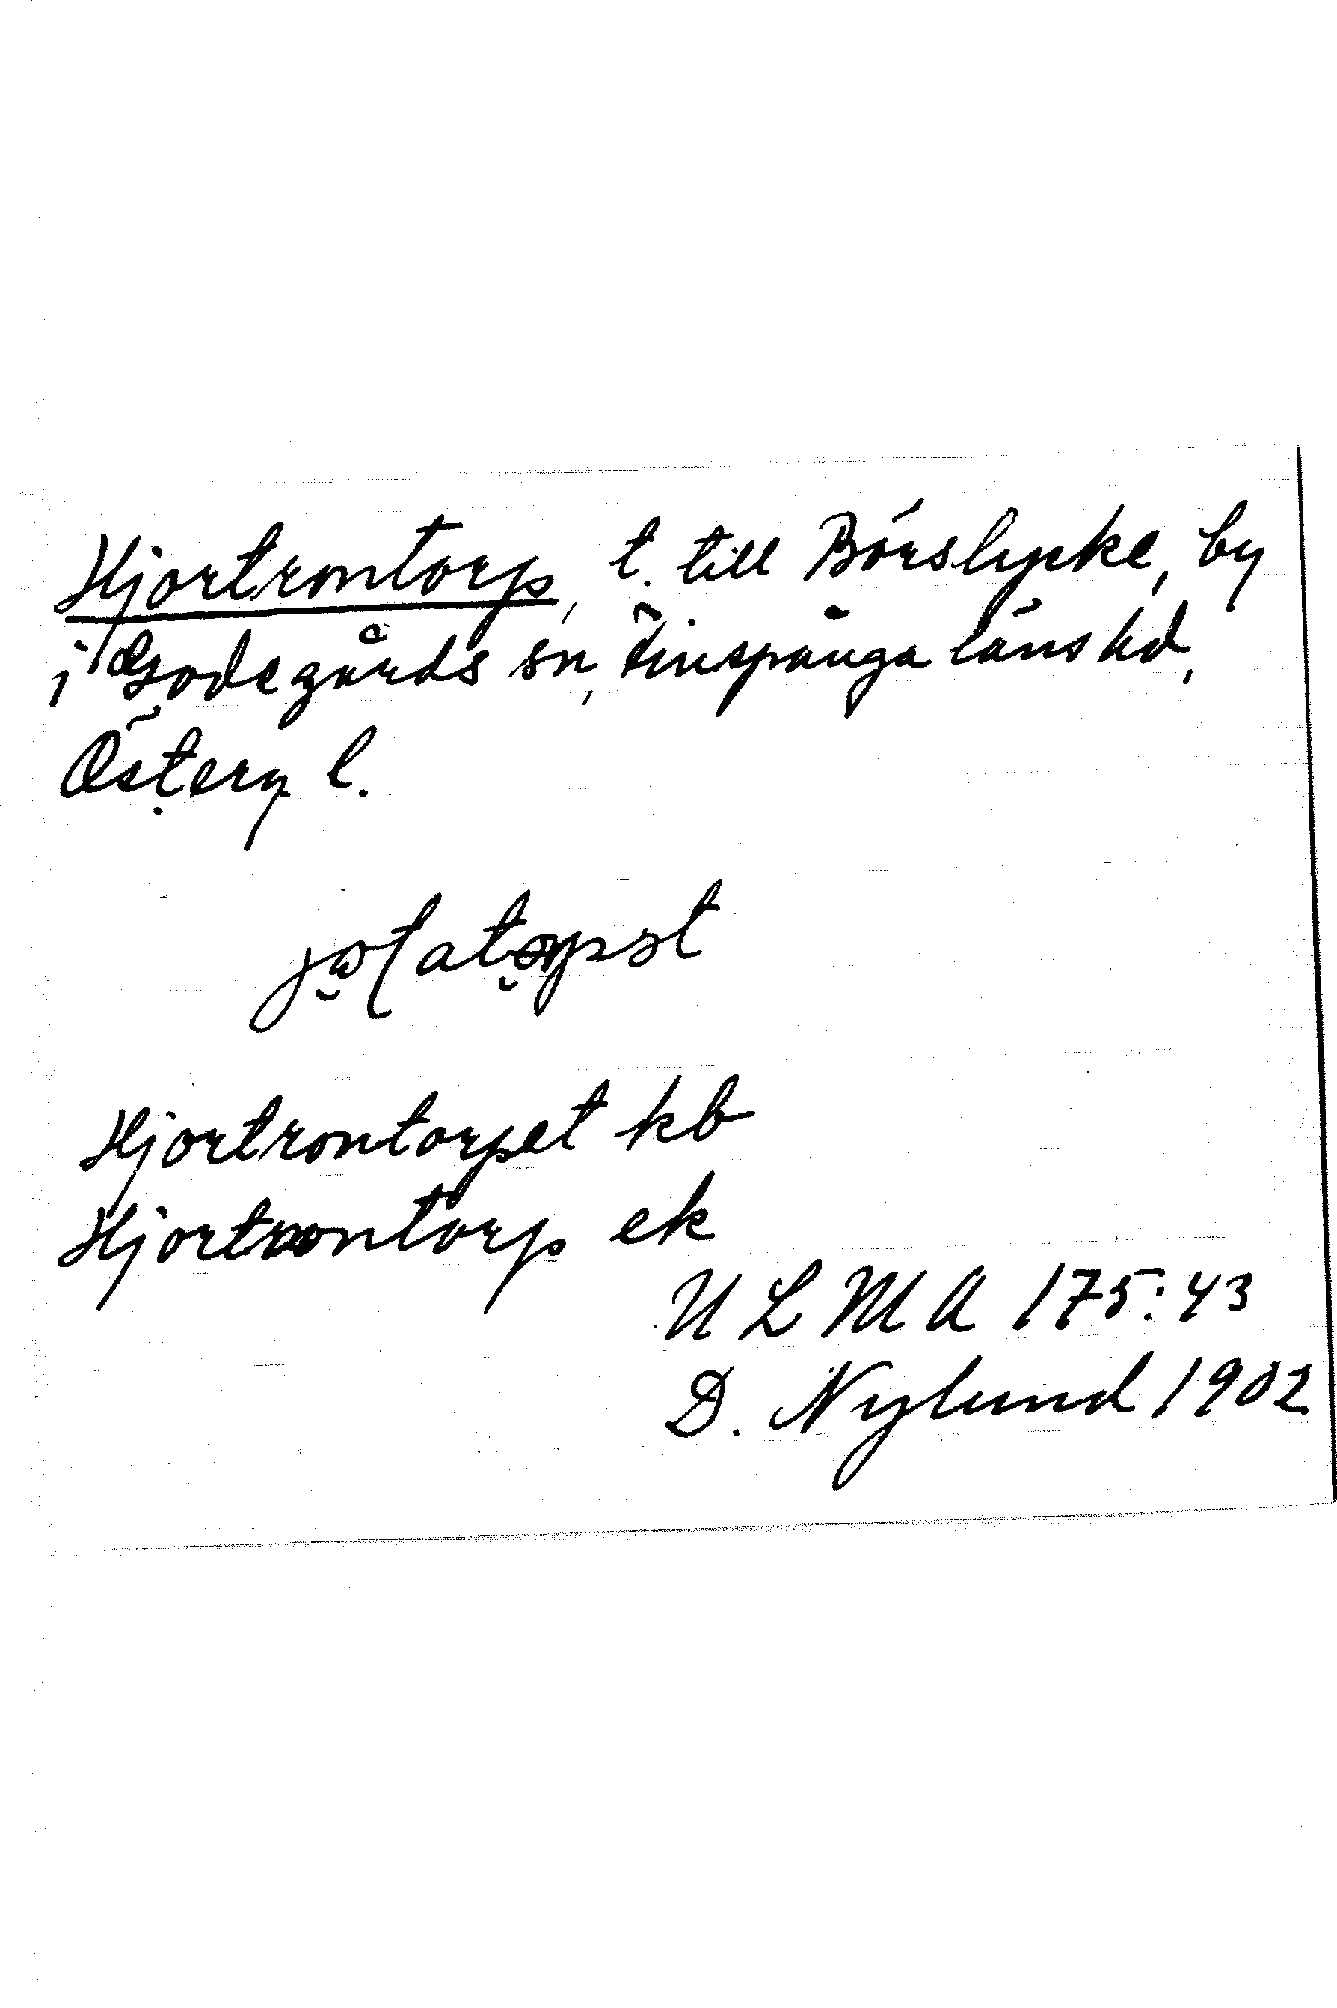 Hjortrontorp, t. till Börslycke, by
i Godegårds sn, Finspånga läns hd,
Österg l.
Hjortrontorpet kb
Hjortrontorp ek
ULMA 175:43
D. Nylund 1902